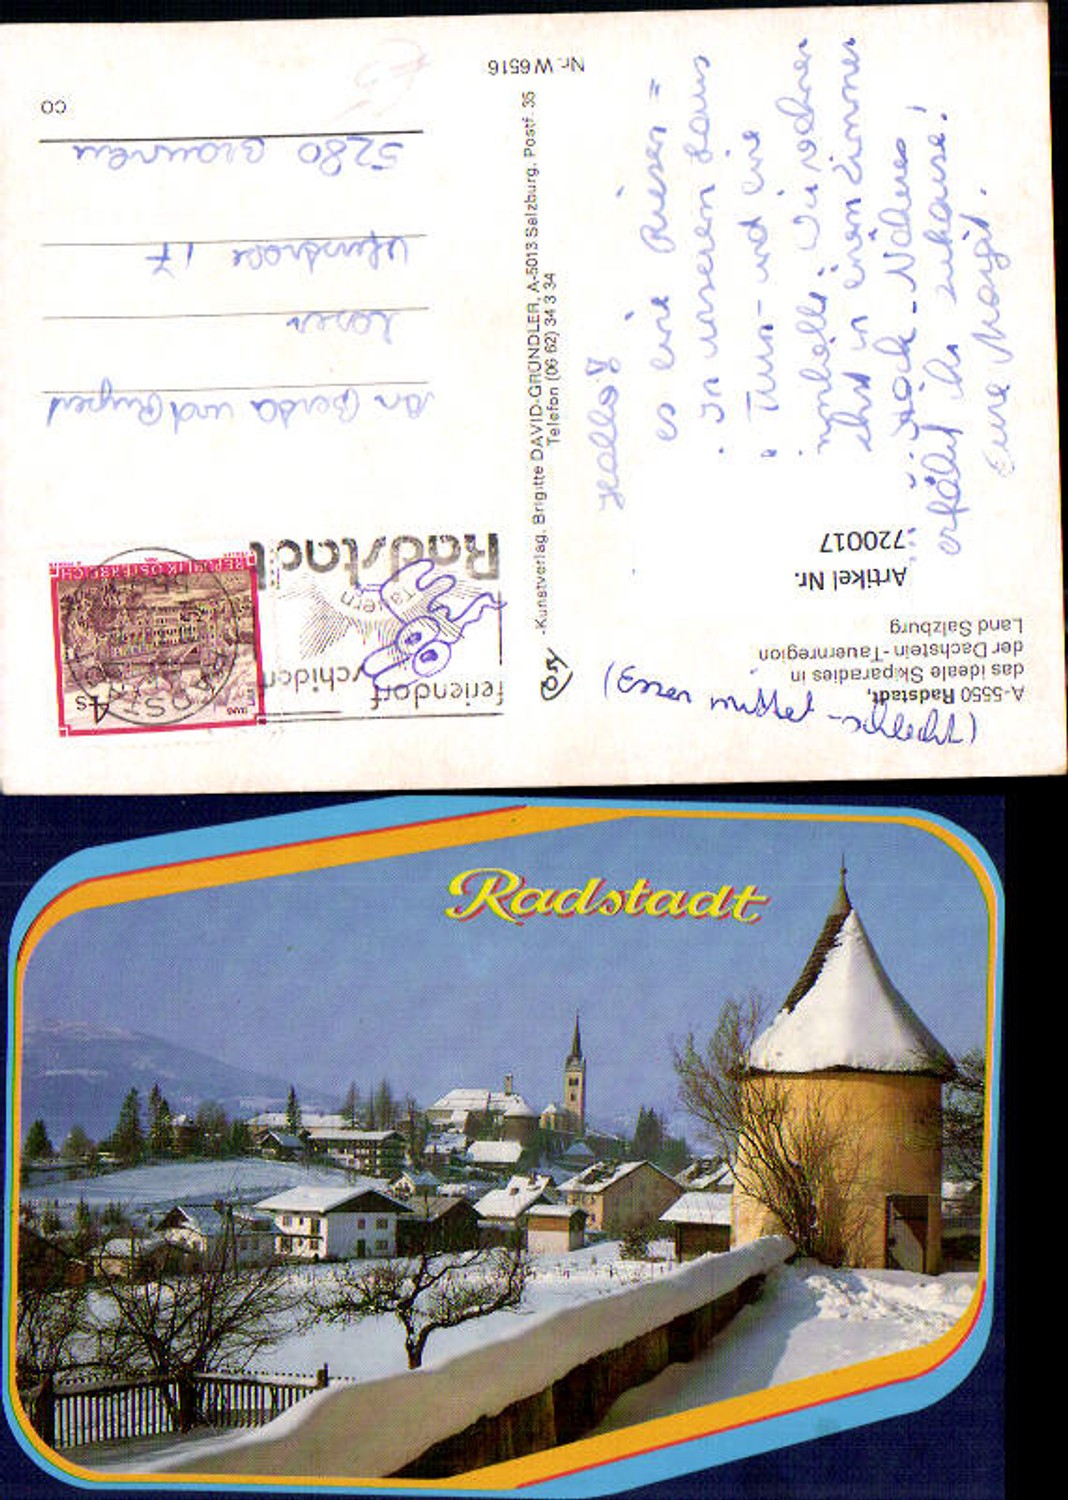 A-5550 Radstadt,
das ideale Skiparadies in
der Dachstein-Tauernregion
Land Salzburg
Artikel Nr.
720017
(Essen mittel - schlecht)
Hallo!
es eine Riesen =
in unserem Haus
Turn- und eine
Wir wohnen
in einem Zimmer
Näheres
erfährt ihr zuhause!
Eure Margit.
Nr. W 6516
-Kunstverlag, Brigitte DAVID-GRÜNDLER, A-5013 Salzburg, Postf. 35
Telefon (06 62) 34 3 34
feriendorf
Radstadt
Tauern
REPUBLIK ÖSTERREICH
4s
An Gerda und Rupert
17
5280 Braunau
CO
Radstadt